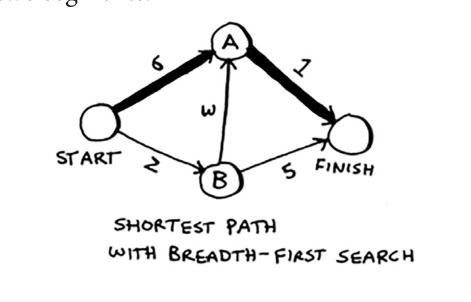 A
6
1
3
START
2
B
5
FINISH
SHORTEST PATH
WITH BREADTH-FIRST SEARCH